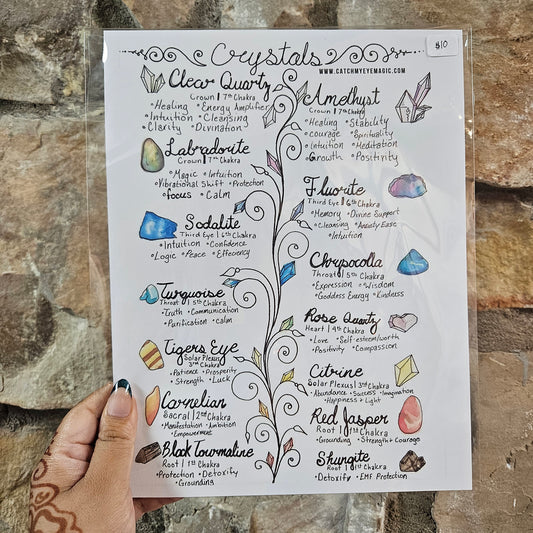 $10
Crystals
WWW.CATCHMYEYEMAGIC.COM
Clear Quartz
Crown | 7th Chakra
•Healing •Energy Amplifier
•Intuition •Cleansing
•Clarity •Divination
Labradorite
Crown | 7th Chakra
•Magic •Intuition
•Vibrational Shift •Protection
•focus •Calm
Sodalite
Third Eye | 6th Chakra
•Intuition •Confidence
•Logic •Peace •Efficiency
Turquoise
Throat | 5th Chakra
•Truth •Communication
•Purification •calm
Tigers Eye
Solar Plexus
3rd Chakra
•Patience •Prosperity
•Strength •Luck
Carnelian
Sacral | 2nd Chakra
•Manifestation •Ambition
•Empowerment
Black Tourmaline
Root | 1st Chakra
•Protection •Detoxify
•Grounding
Amethyst
Crown | 7th Chakra
•Healing •Stability
•courage •Spirituality
•Intuition •Meditation
•Growth •Positivity
Fluorite
Third Eye | 6th Chakra
•Memory •Divine Support
•Cleansing •Anxiety Ease
•Intuition
Chrysocolla
Throat | 5th Chakra
•Expression •Wisdom
•Goddess Energy •Kindness
Rose Quartz
Heart | 4th Chakra
•Love •Self-esteem/worth
•Positivity •Compassion
Citrine
Solar Plexus | 3rd Chakra
•Abundance •Success •Imagination
•Happiness + Light
Red Jasper
Root | 1st Chakra
•Grounding •Strength + Courage
Shungite
Root | 1st Chakra
•Detoxify •EMF Protection